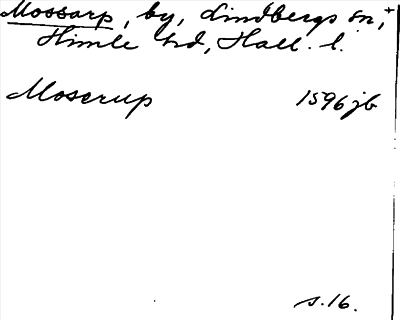 Mossarp, by, Lindbergs sn, +
Himle hd, Hall. l.
Moserup 1596 jb
s. 16.